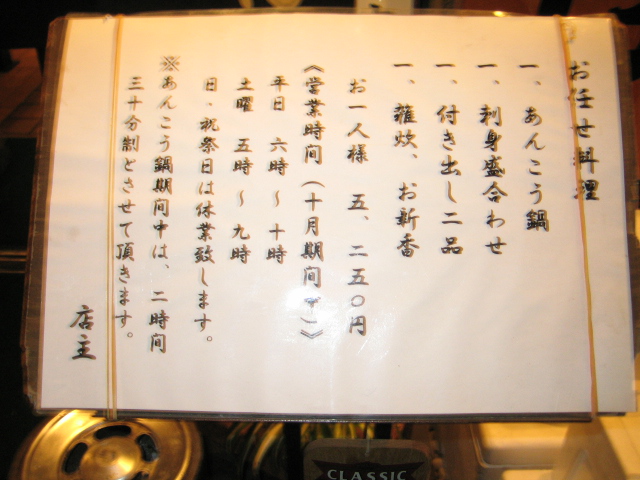 お任せ料理
一、あんこう鍋
一、刺身盛合わせ
一、付き出し二品
一、雑炊、お新香
お一人様 五、二五〇円
《営業時間(十月期間中)》
平日 六時〜十時
土曜 五時〜九時
日・祝祭日は休業致します。
※あんこう鍋期間中は、二時間
三十分制とさせて頂きます。
店主
CLASSIC